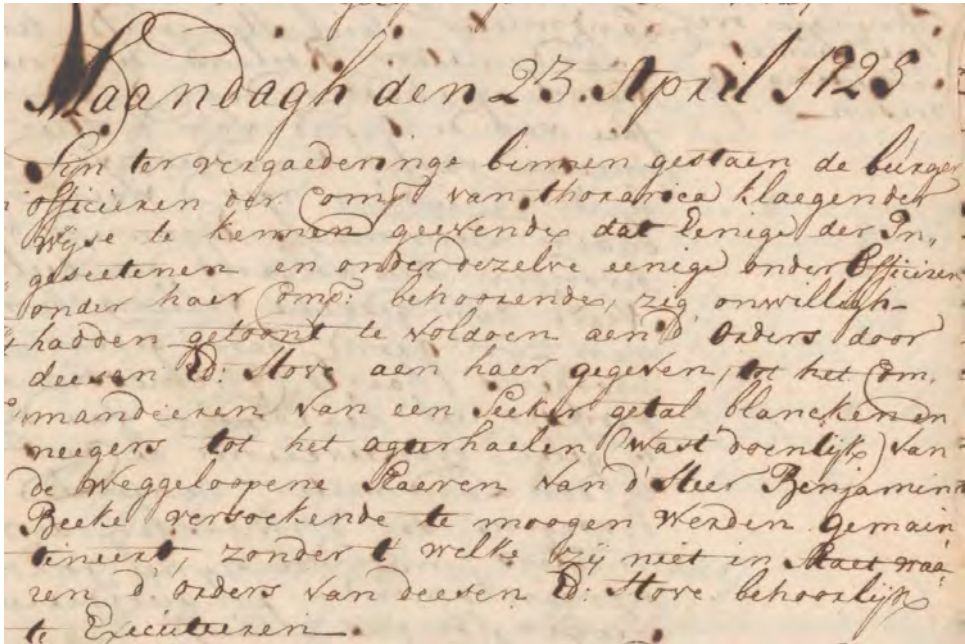 Maandagh den 23. April 1725
Sijn ter vergaederinge binnen gestaen de burger
officieren der Comp: van thorarica klaegender
wijse te kennen geevende dat Eenige der In„
geseetenen en onder dezelve eenige onder Officieren
onder haer Comp: behoorende, zig onwilligh
hadden getoont te voldoen aen d' orders door
deesen Ed: Hove aen haer gegeven, tot het Com„
mandeeren van een Seeker getal blancken en
neegers tot het agterhaelen (wast doenlijk) van
de weggeloopene Slaeven van d' Heer Benjamin
Beeke versoekende te moogen werden gemain
tineert, zonder 't welke zij niet in Staet waa
ren d' orders van deesen Ed: Hove behoorlijk
te Executeeren.